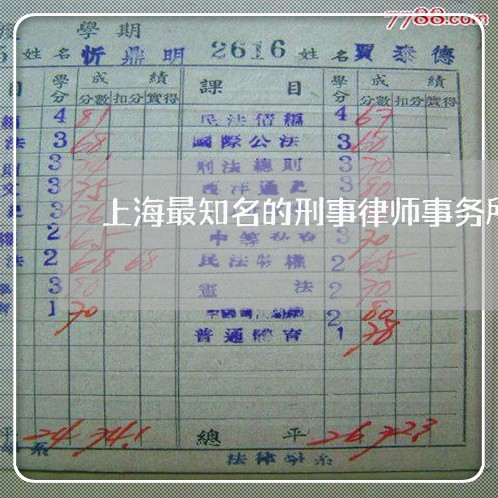 7788.com
度 學期
5 姓名 忻鼎明 2616 姓名 賈泰德
目 學分 成績 課目 學分 成績
分數 扣分 實得 分數 扣分 實得
編 4 81 民法債編 4 67
法 3 68 國際公法 3 60
則 3 刑法總則 3 70
史 3 75 西洋通史 3 80
上海最知名的刑事律师事务所
2 65 中等 3 70
法 2 68 68 民法物權 2 65
3 80 憲法 2 70
育 1 70 2 80
普通體育 1 78
平 24 74.1 總平 26 72.3
系 法律學系